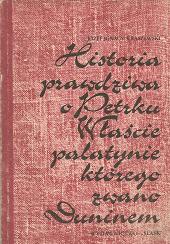 JÓZEF IGNACY KRASZEWSKI
Historia
prawdziwa
o Petrku
Właście
palatynie
którego
zwano
Duninem
WYDAWNICTWO „ŚLĄSK"